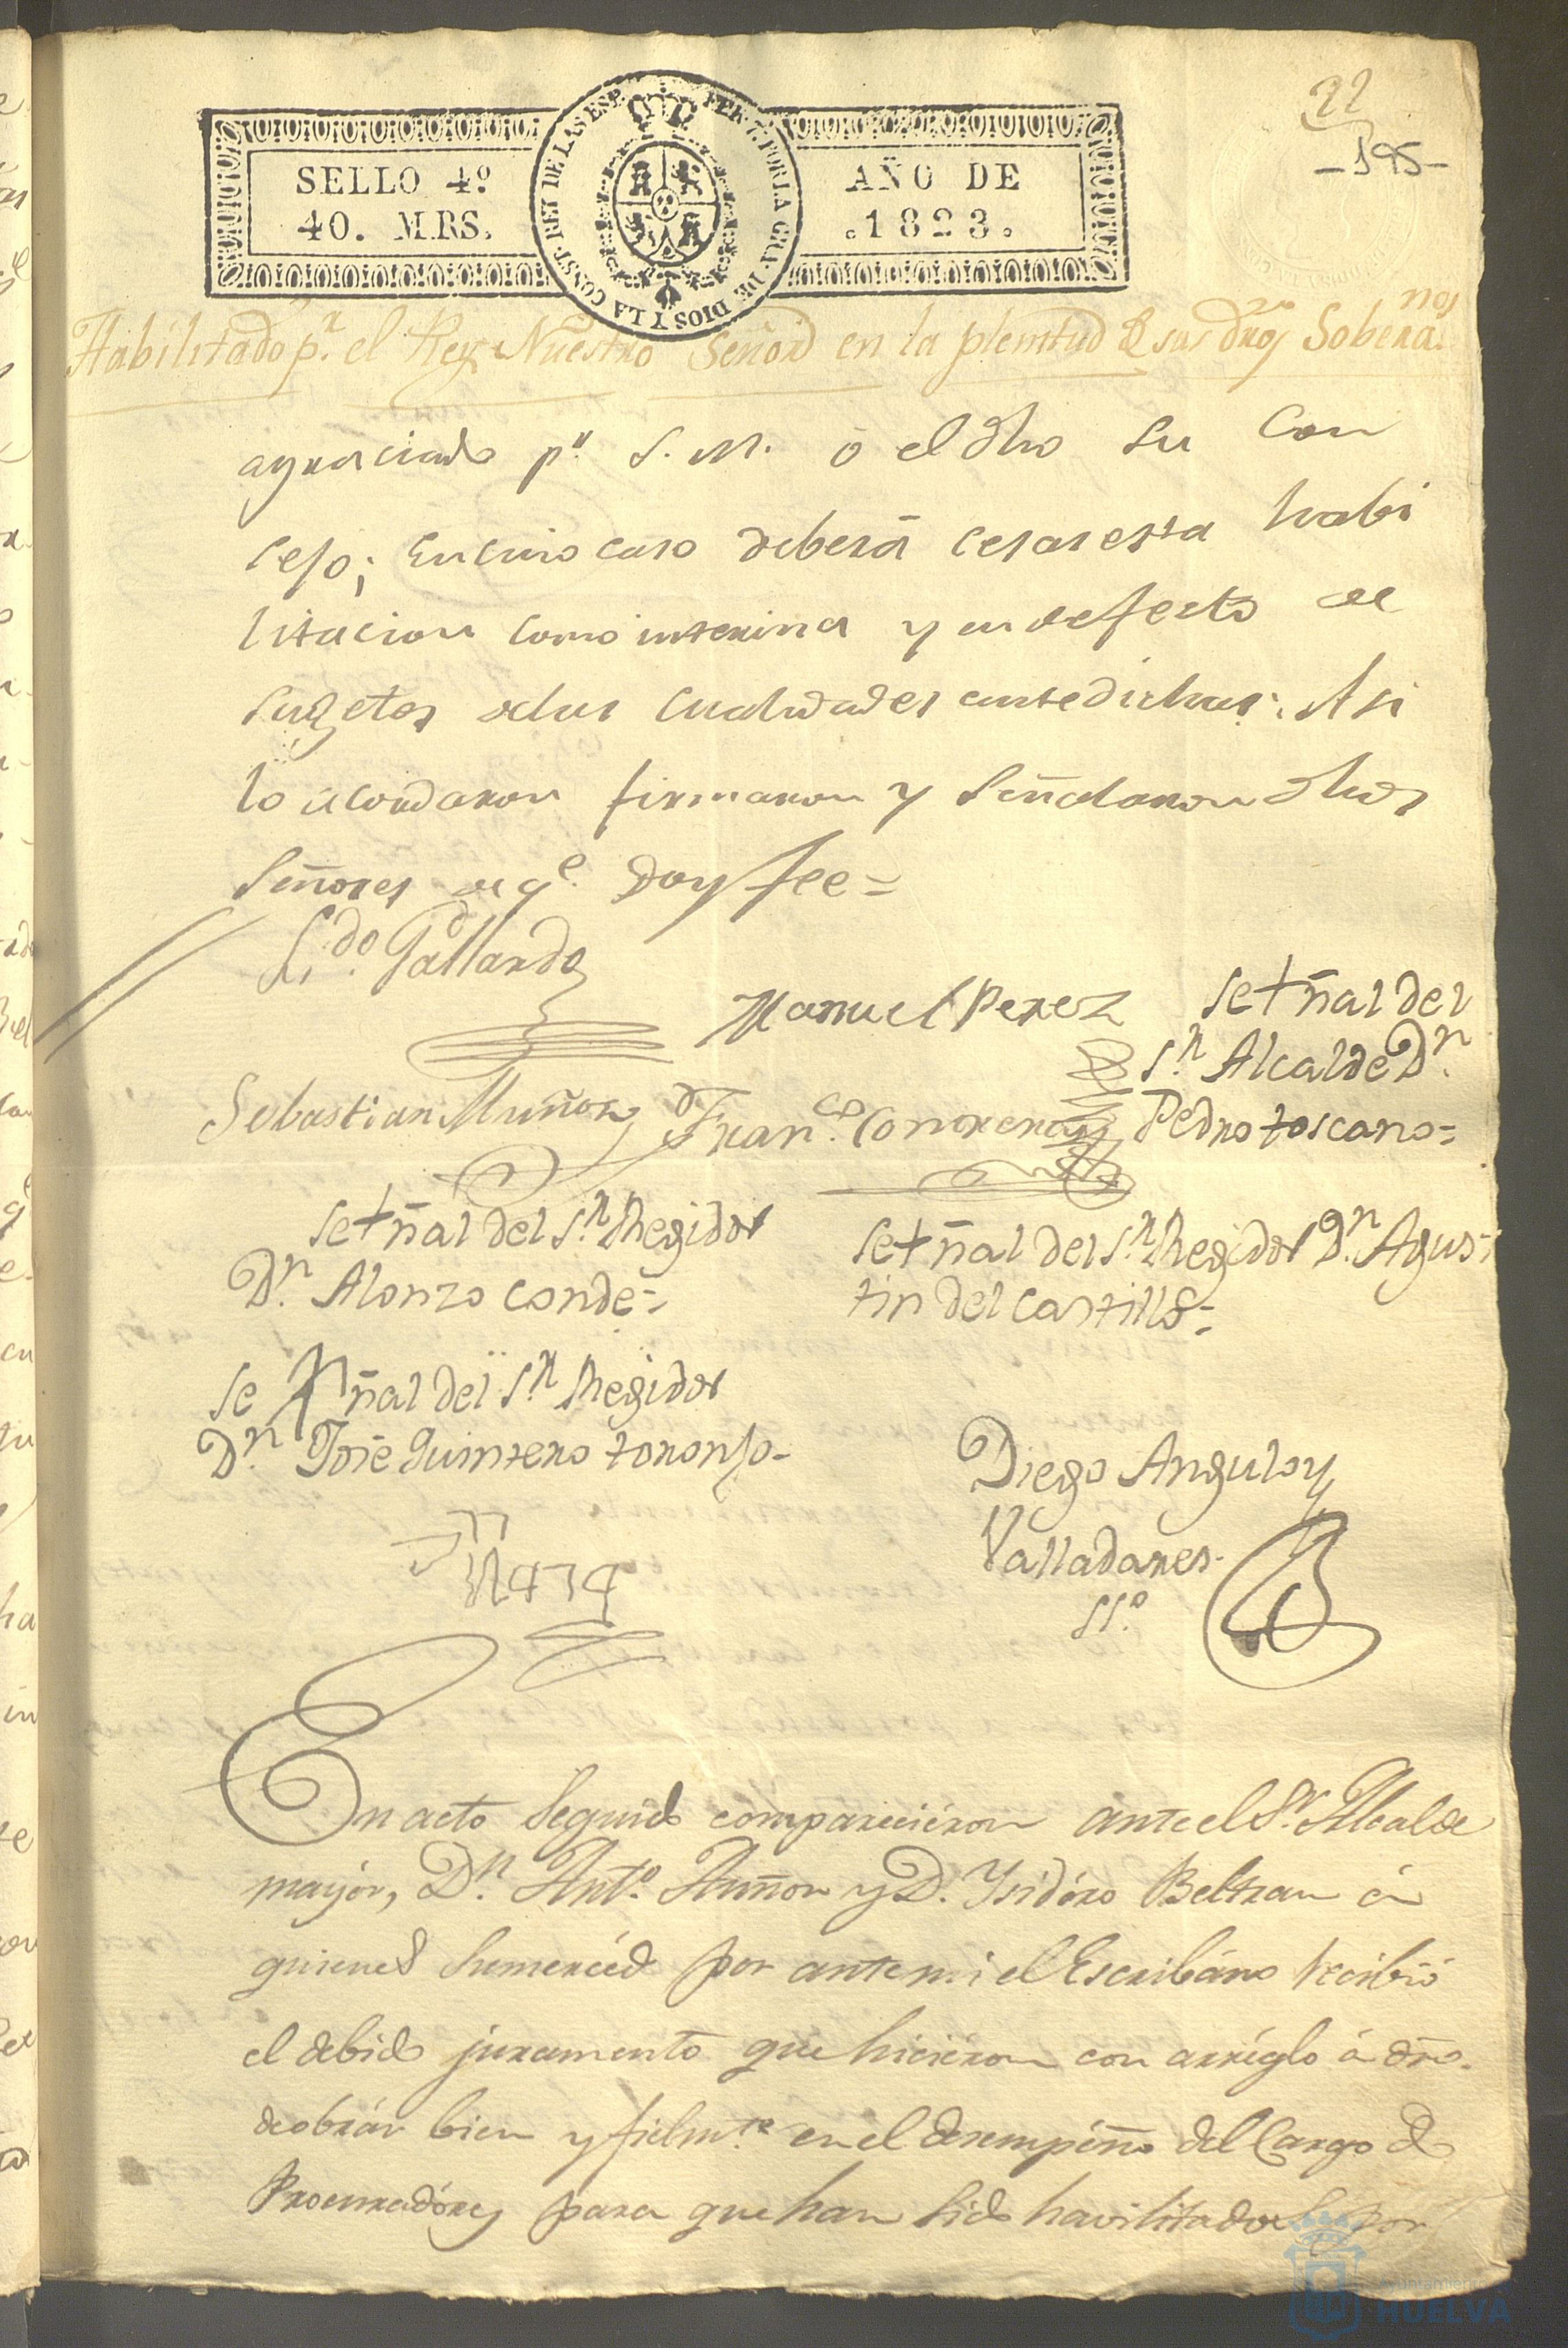 22
-195-
SELLO 4º
40. MRS.
AÑO DE
.1823.
FER. 7. POR LA GRA. DE DIOS Y LA CONST. REY DE LAS ESP.
Habilitado p.r el Rey Nuestro Señor en la plenitud de sus dros Soberanos
agraciado p.r S. M. ó el dho su Con
sejo; en cuio caso deberá cesar esta habi
litacion como interina y en defecto de
sugetos de las cualidades antedichas: Asi
lo acordaron firmaron y señalaron dhos
Señores de q.e doy fee=
L.do Gallardo
Manuel Perez
Se+ñal del
S.n Alcalde D.n
Pedro toscano=
Sebastian Muñoz
Fran.co Contreras
Se+ñal del S.n Regidor
D.n Alonzo Conde=
Se+ñal del S.n Regidor D.n Agus-
tin del Castillo=
Se+ñal del S.n Regidor
D.n Jose Quintero toronjo-
Diego Angulo y
Valladares.
SS.º
En acto seguido comparecieron ante el S.r Alcalde
mayór, D.n Ant.º Muñoz y D. Ysidóro Beltran á
quienes sumercéd por ante mi el Escribáno recibió
el debido juramento que hicieron con arréglo á dro.
de obrár bien y fielm.te en el desempeño del Cargo de
Procuradóres para que han sido havilitados por
Ayuntamiento
HUELVA